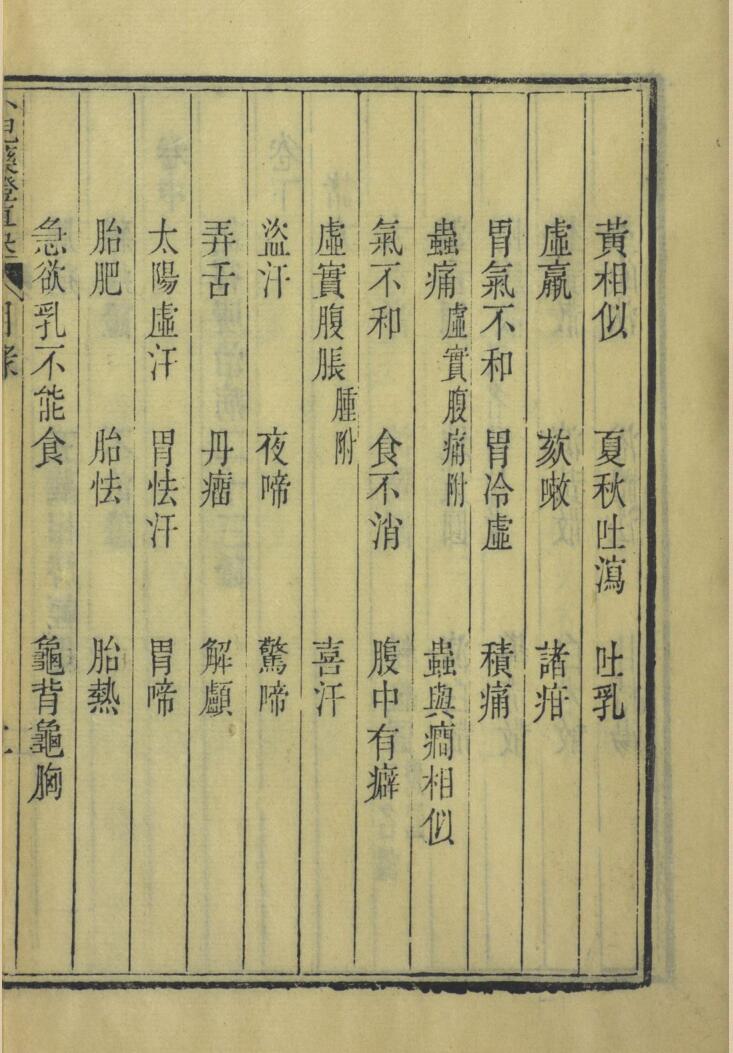 黃相似　夏秋吐瀉　吐乳
虛羸　欬嗽　諸疳
胃氣不和　胃冷虛　積痛
蟲痛虛實腹痛附　蟲與癎相似
氣不和　食不消　腹中有癖
虛實腹脹腫附　喜汗
盜汗　夜啼　驚啼
弄舌　丹瘤　解顱
太陽虛汗　胃怯汗　胃啼
胎肥　胎怯　胎熱
急欲乳不能食　龜背龜胸
小兒藥證直訣　目錄